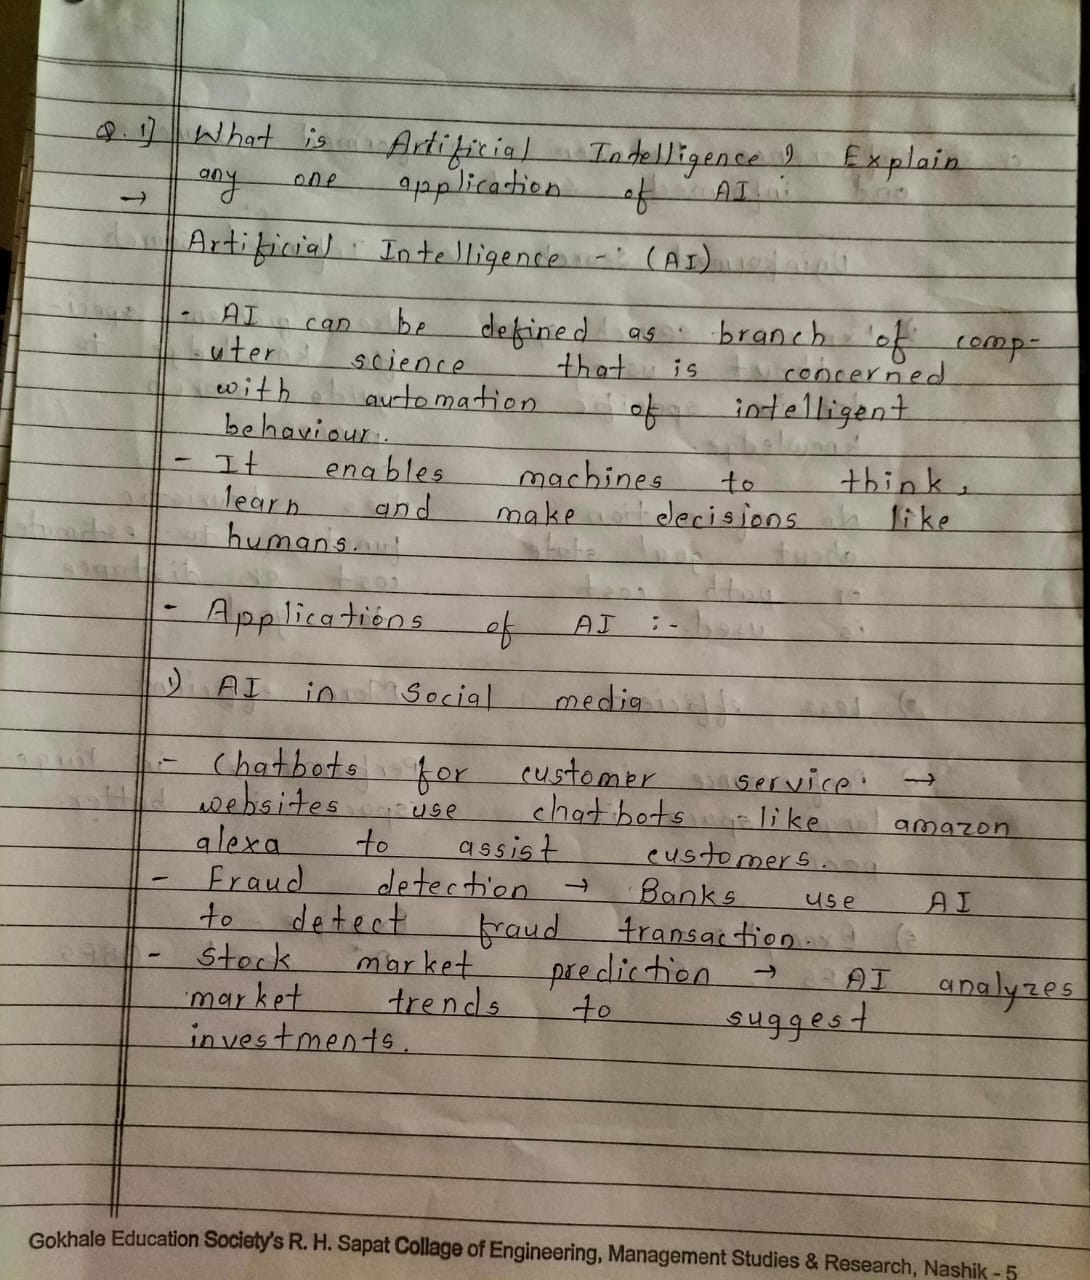 Q. 1] What is Artificial Intelligence ? Explain
any one application of AI.
→
Artificial Intelligence - (AI)
- AI can be defined as branch of comp-
uter science that is concerned
with automation of intelligent
behaviour.
- It enables machines to think,
learn and make decisions like
humans.
- Applications of AI :-
1) AI in Social media
- Chatbots for customer service →
websites use chatbots like amazon
alexa to assist customers.
- Fraud detection → Banks use AI
to detect fraud transaction.
- Stock market prediction → AI analyzes
market trends to suggest
investments.
Gokhale Education Society's R. H. Sapat Collage of Engineering, Management Studies & Research, Nashik - 5